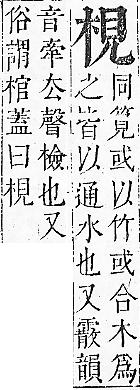 梘同筧或以竹或合木為
之皆以通水也又霰韻
音牽去聲檢也又
俗謂棺蓋曰梘